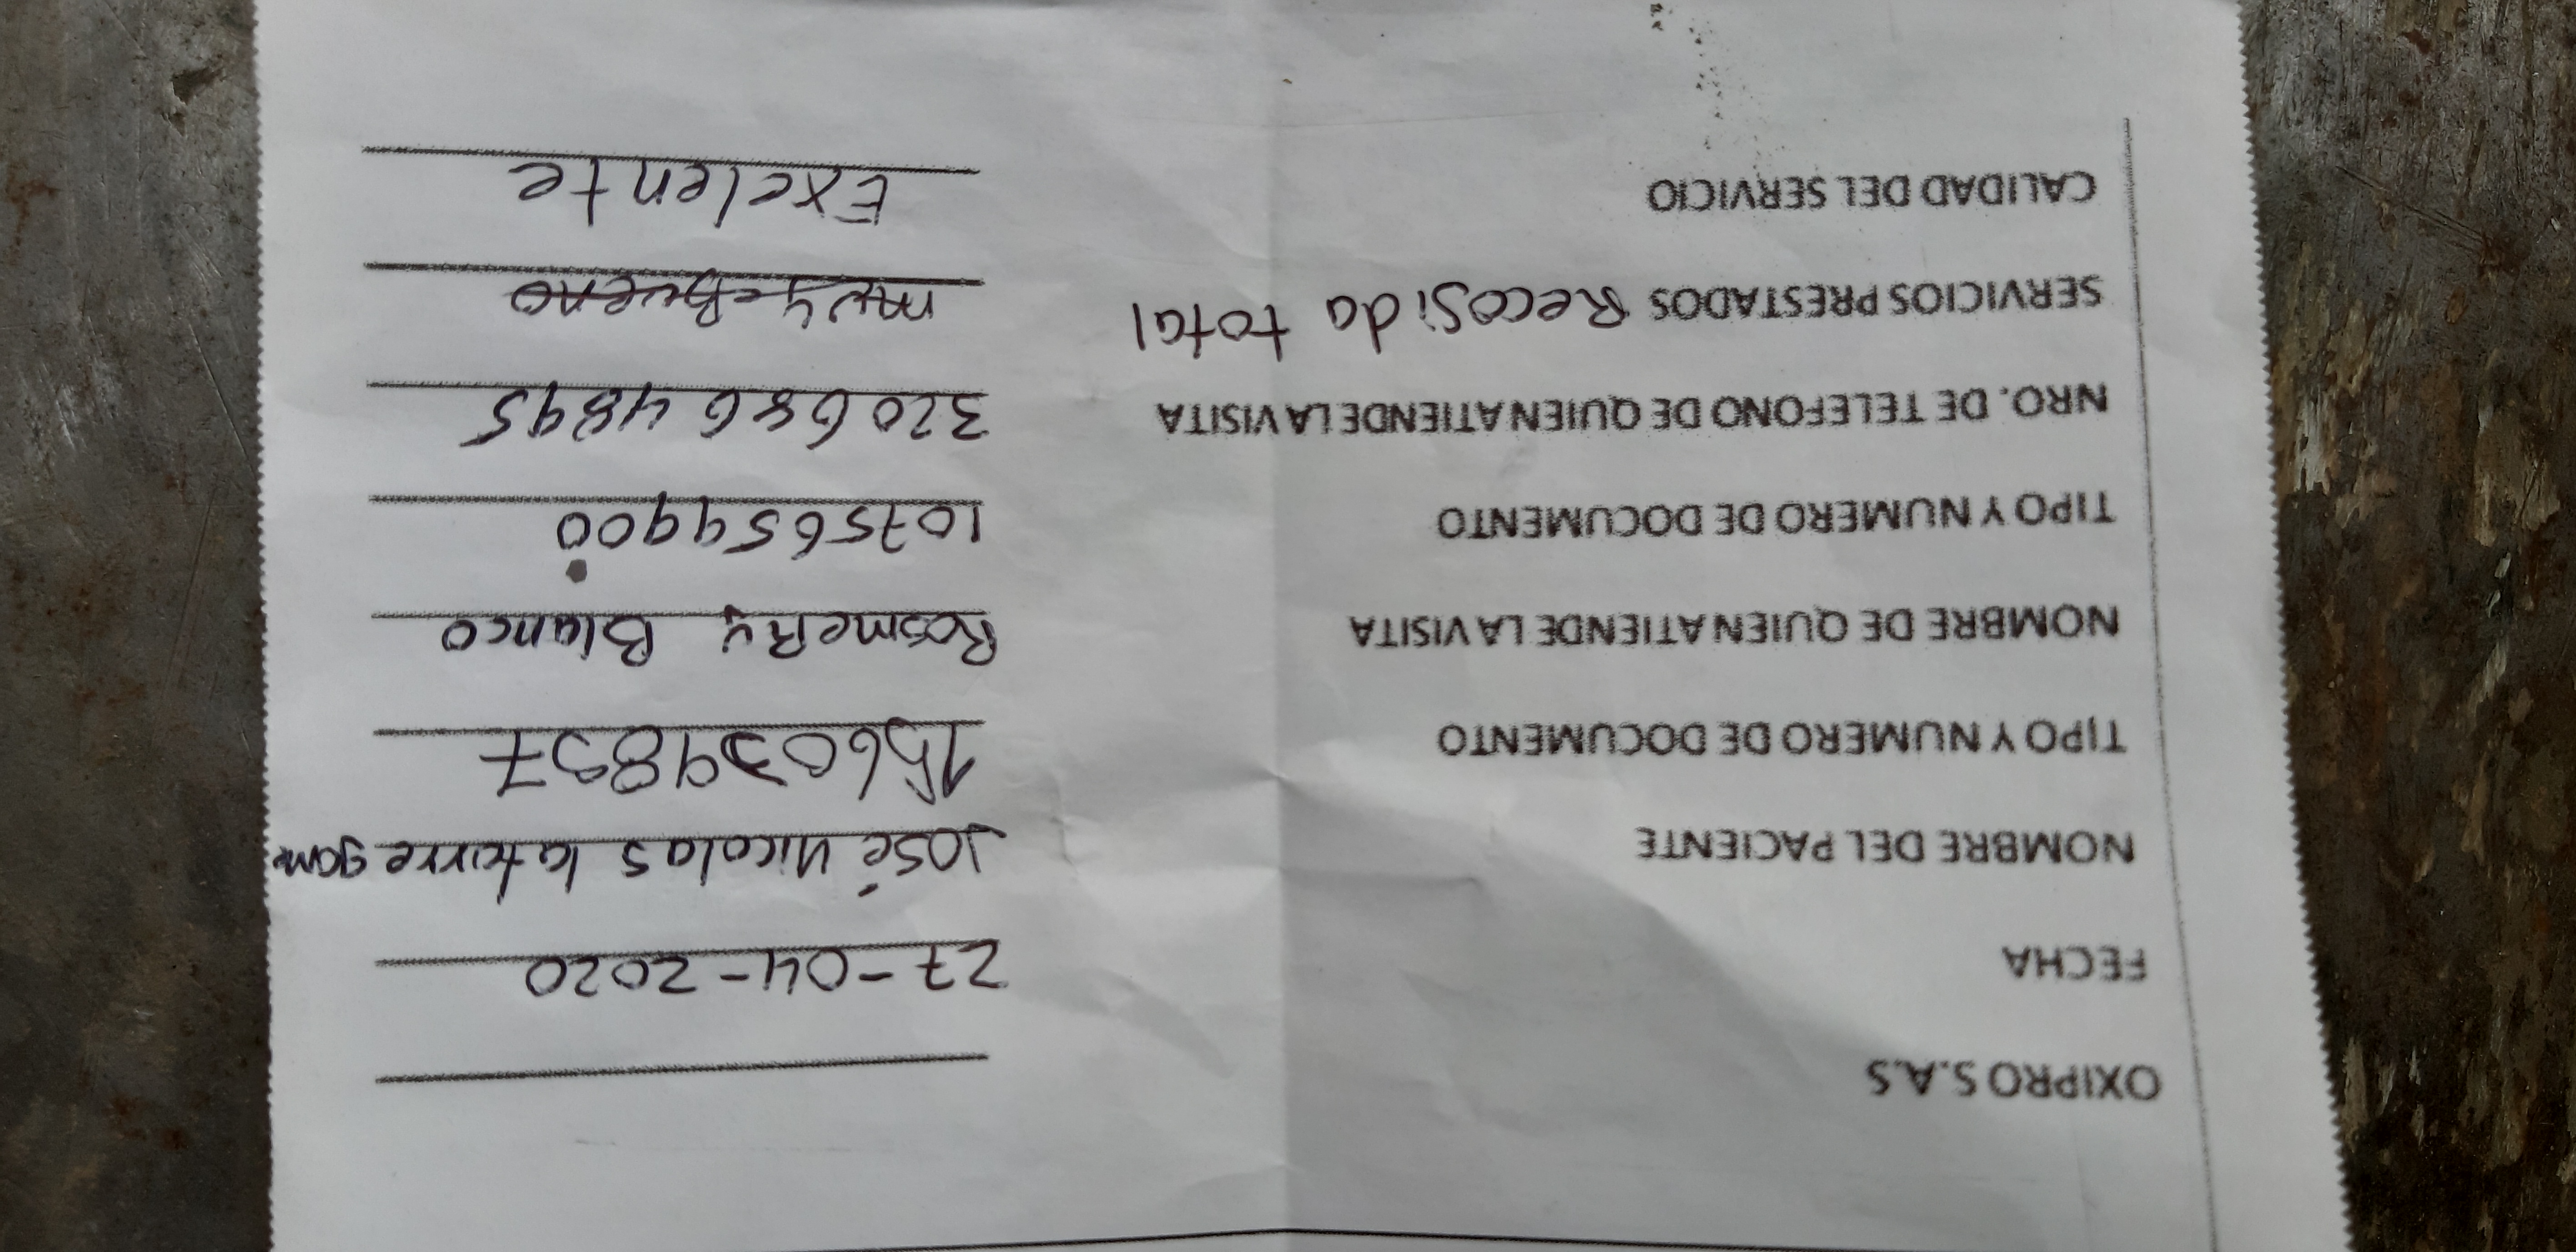 OXIPRO S.A.S
FECHA 27-04-2020
NOMBRE DEL PACIENTE José Nicolas latorre
TIPO Y NUMERO DE DOCUMENTO
NOMBRE DE QUIEN ATIENDE LA VISITA RosmeRy Blanco
TIPO Y NUMERO DE DOCUMENTO 1075659900
NRO. DE TELEFONO DE QUIEN ATIENDE LA VISITA 3206864895
SERVICIOS PRESTADOS Recosida total muy Bueno
CALIDAD DEL SERVICIO Exelente